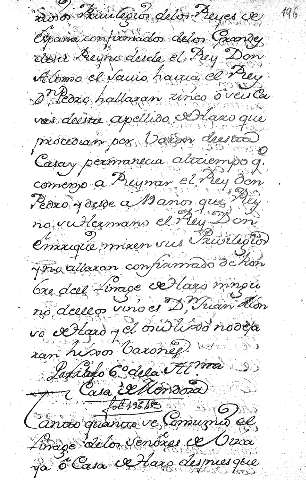 196
Privilegios de los Reyes de
España confirmados de los Grandes
Reyno desde el Rey Don
Alonso el Savio hasta el Rey
Dn Pedro, hallaran cinco ô seis
deeste apellido de Haro que
procedian por Varon deesta
Casa y permanecia al tiempo q.
comenzo a Reynar el Rey Don
Pedro y desde a años que Rey
no su Hermano el Rey Don
Enrrique miren sus Privilegios
y no allaran confirmado de hom
bre deel linage de Haro ningu
no, deellos vino es Dn Juan Alon
so de Haro y el
ran hijos Varones.
Casa de Mendoza
el
linage de los Señores de Vizca
ya ô Casa de Haro despues que